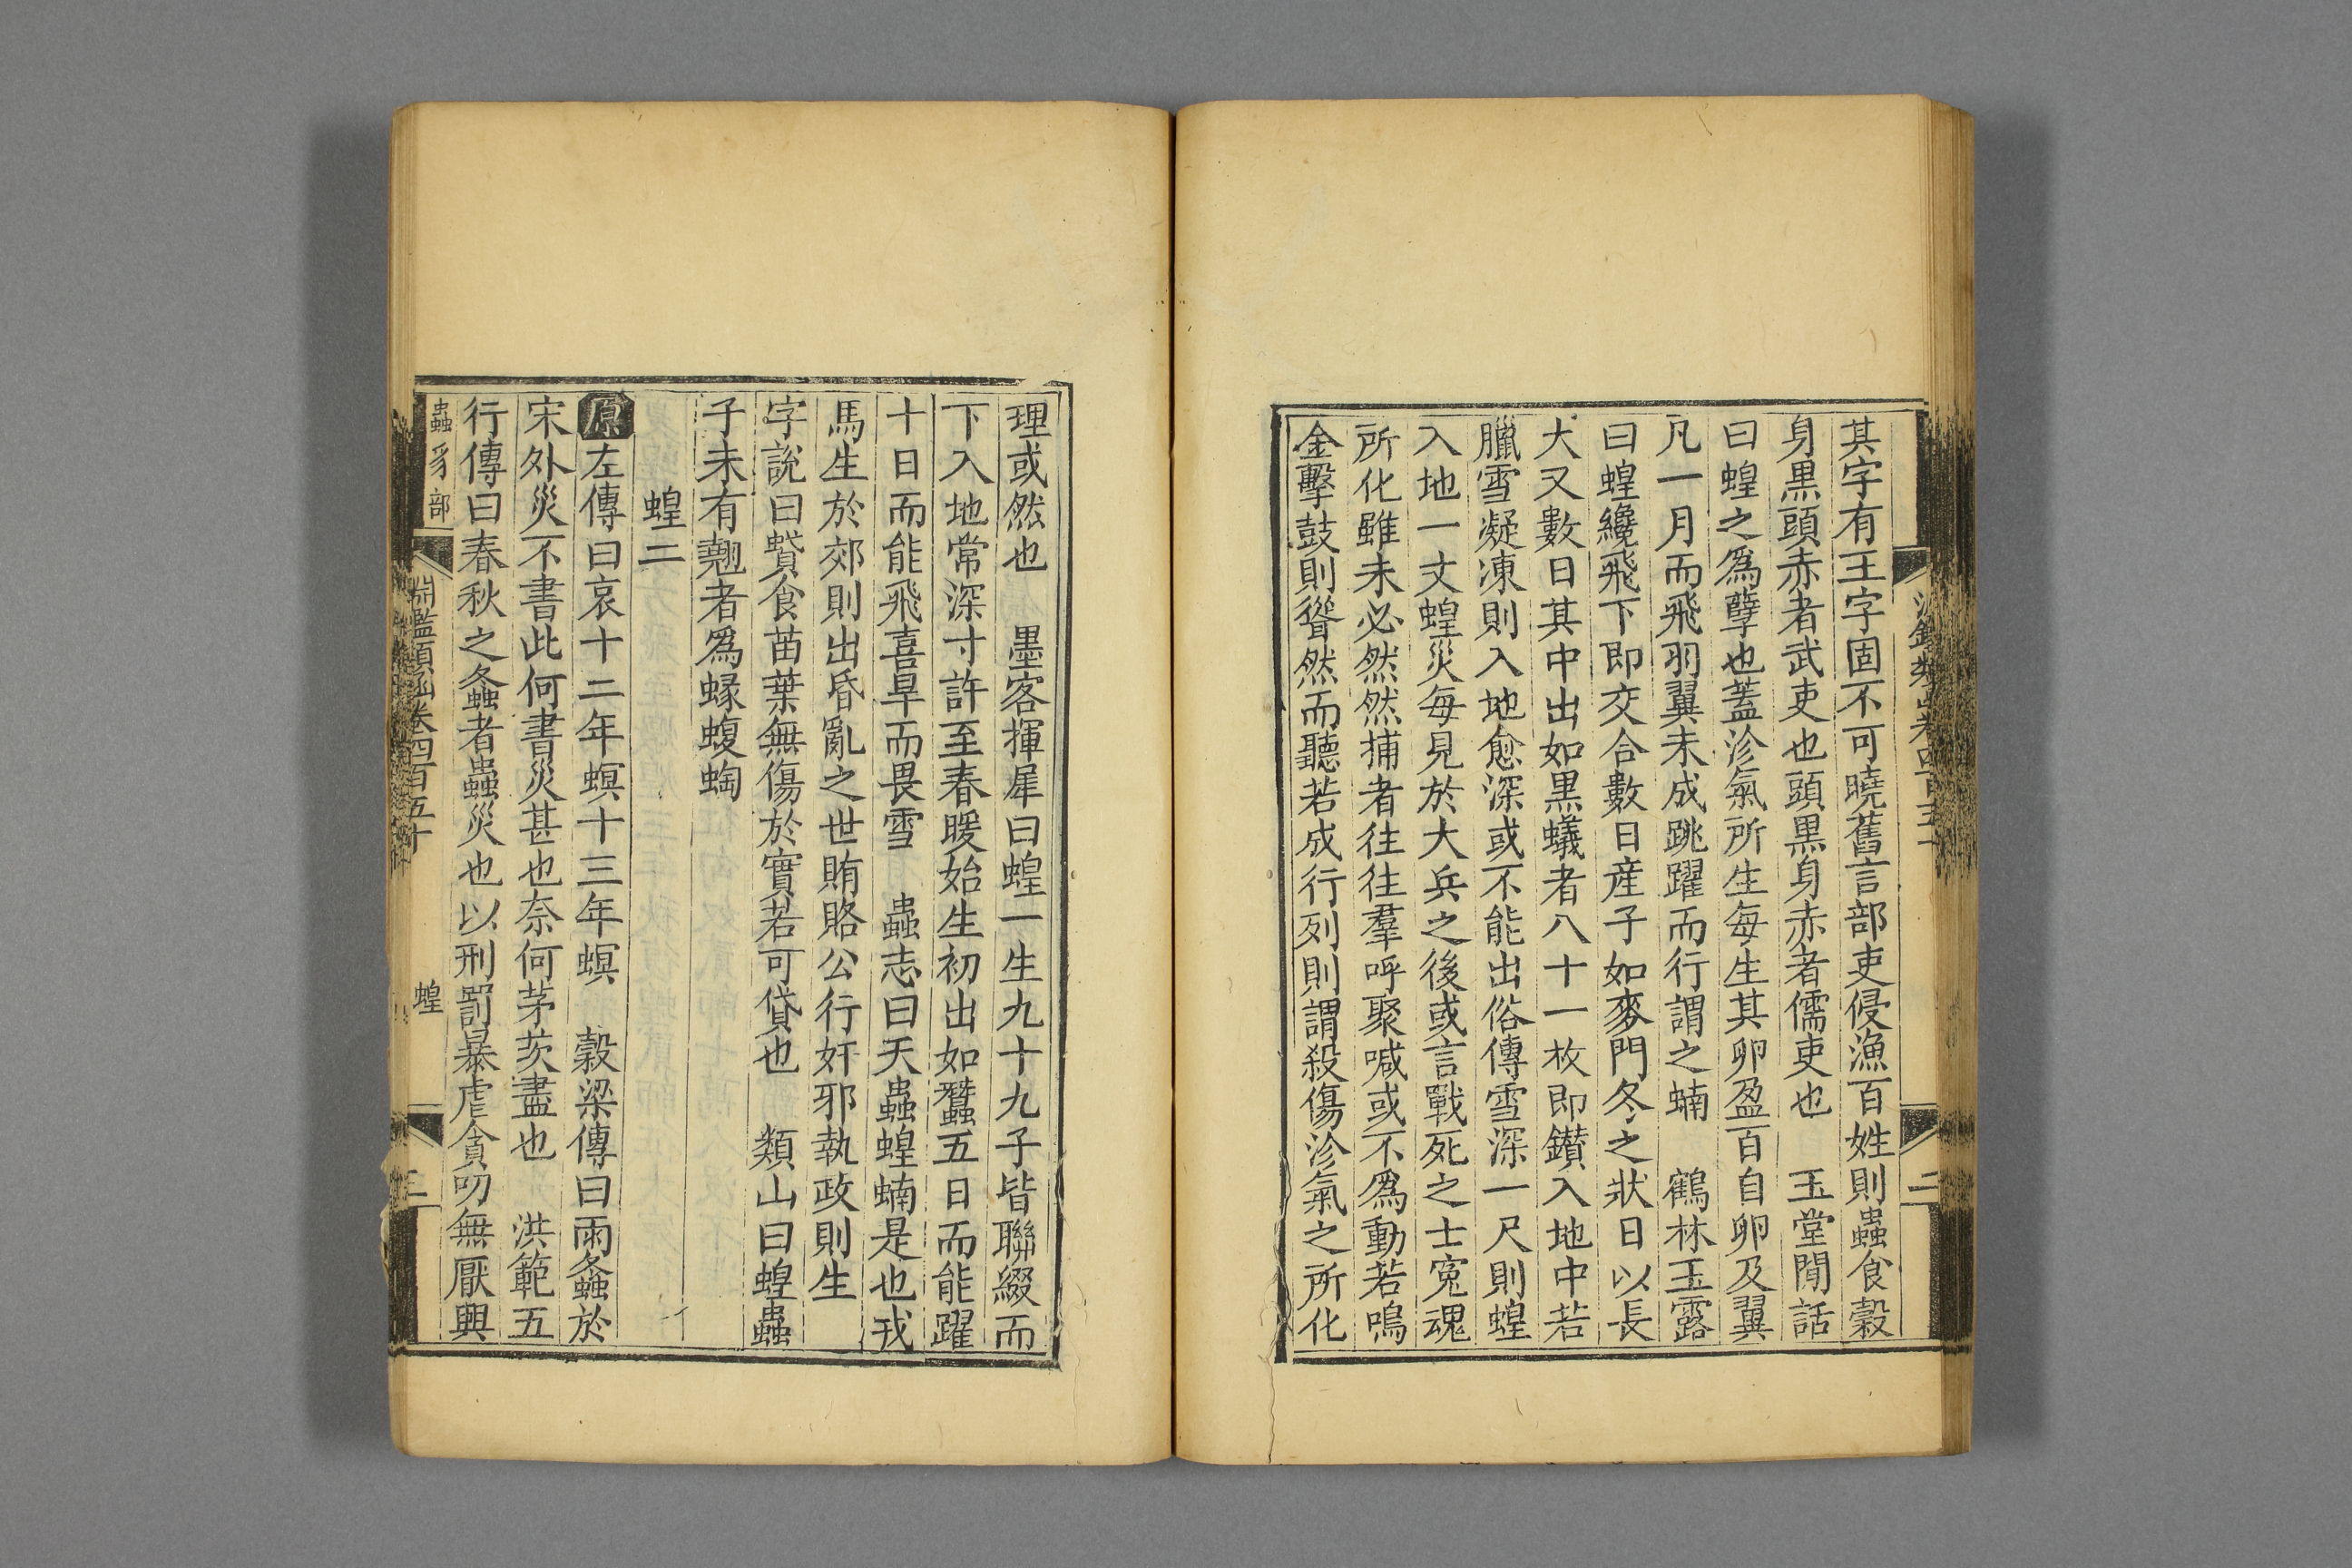 其字有王字固不可曉舊言部吏侵漁百姓則蟲食穀
身黒頭赤者武吏也頭黒身赤者儒吏也　玉堂閒話
曰蝗之爲孽也蓋沴氣所生每生其卵盈百自卵及翼
凡一月而飛羽翼未成跳躍而行謂之蝻　鶴林玉露
曰蝗纔飛下即交合數日産子如麥門冬之狀日以長
大又數日其中出如黒蟻者八十一枚即鑽入地中若
臘雪凝凍則入地愈深或不能出俗傳雪深一尺則蝗
入地一丈蝗災每見於大兵之後或言戰死之士寃魂
所化雖未必然然捕者往往羣呼聚喊或不爲動若鳴
金擊鼓則聳然而聽若成行列則謂殺傷沴氣之所化
理或然也　墨客揮犀曰蝗一生九十九子皆聯綴而
下入地常深寸許至春暖始生初出如蠶五日而能躍
十日而能飛喜旱而畏雪　蟲志曰天蟲蝗蝻是也戎
馬生於郊則出昏亂之世賄賂公行奸邪執政則生
字說曰蟘食苗葉無傷於實若可貸也　類山曰蝗蟲
子未有翹者爲蝝蝮蜪
蝗二
原左傳曰哀十二年螟十三年螟　穀梁傳曰雨螽於
宋外災不書此何書災甚也奈何茅茨盡也　洪範五
行傳曰春秋之螽者蟲災也以刑罰暴虐貪叨無厭興
蟲豸部
淵鑑類函卷四百五十
蝗
二